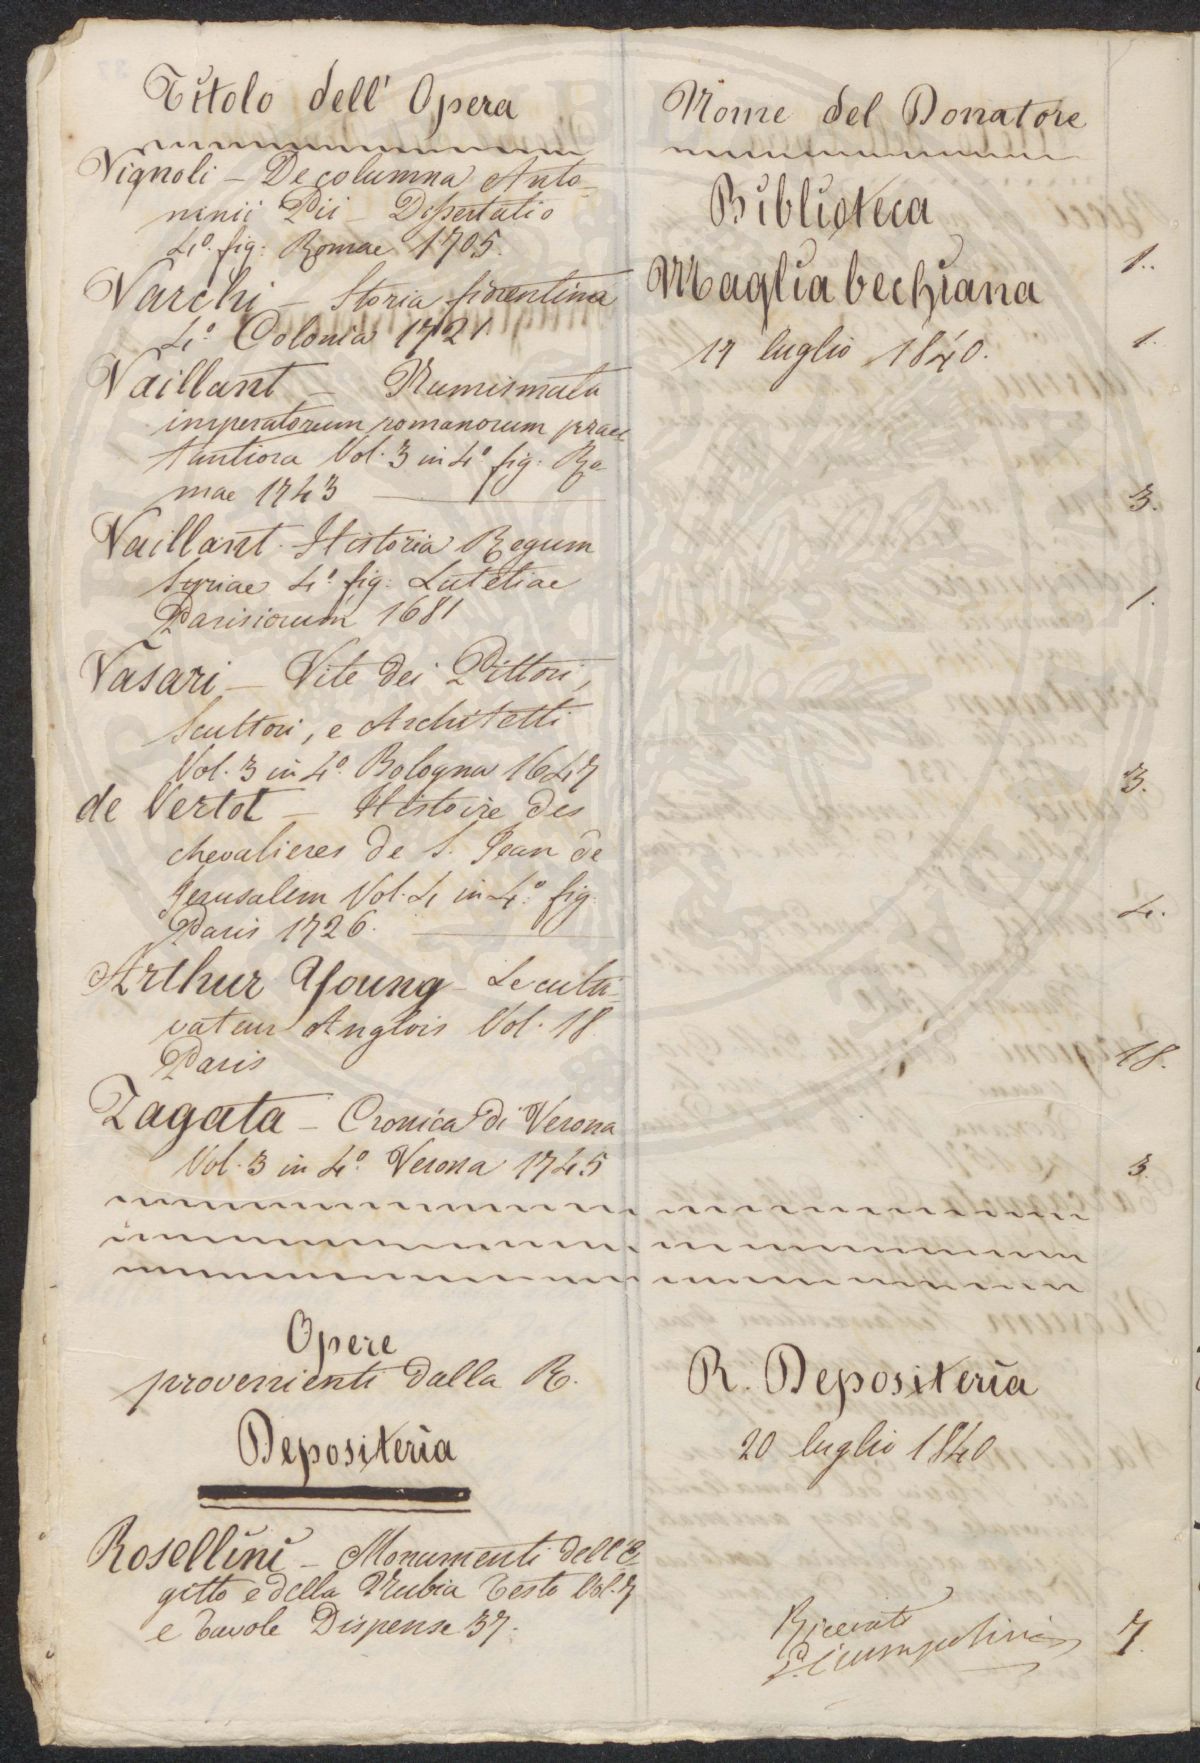 Titolo dell' Opera
Vignoli - De columna Anto-
ninii Pii - Dissertatio
4º. fig: Romae 1705.
Varchi - Storia fiorentina
4º. Colonia 1721
Vaillant - Numismata
imperatorum romanorum praes
tantiora Vol. 3 in 4º fig. Ro
mae 1743
Vaillant. Historia Regum
Syriae 4º. fig: Lutetiae
Parisiorum 1681
Vasari - Vite dei Pittori,
Scultori, e Architetti
Vol. 3 in 4º. Bologna 1647
de Vertot - Histoire des
chevalieres de S. Jean de
Jerusalem Vol. 4 in 4º. fig.
Paris 1726.
Arthur Young - Le culti-
vateur Anglois Vol. 18.
Paris
Zagata - Cronica di Verona
Vol. 3 in 4º. Verona 1745
Opere
provenienti dalla R.
Depositeria
Rosellini - Monumenti dell'E
gitto e della Nubia Testo Vol. 7
e Tavole Dispense 37.
Nome del Donatore
Biblioteca
Magliabechiana
17 luglio 1840.
R. Depositeria
20 luglio 1840
Ricevuto
1.
1.
3.
1.
3.
4.
18.
3.
7.